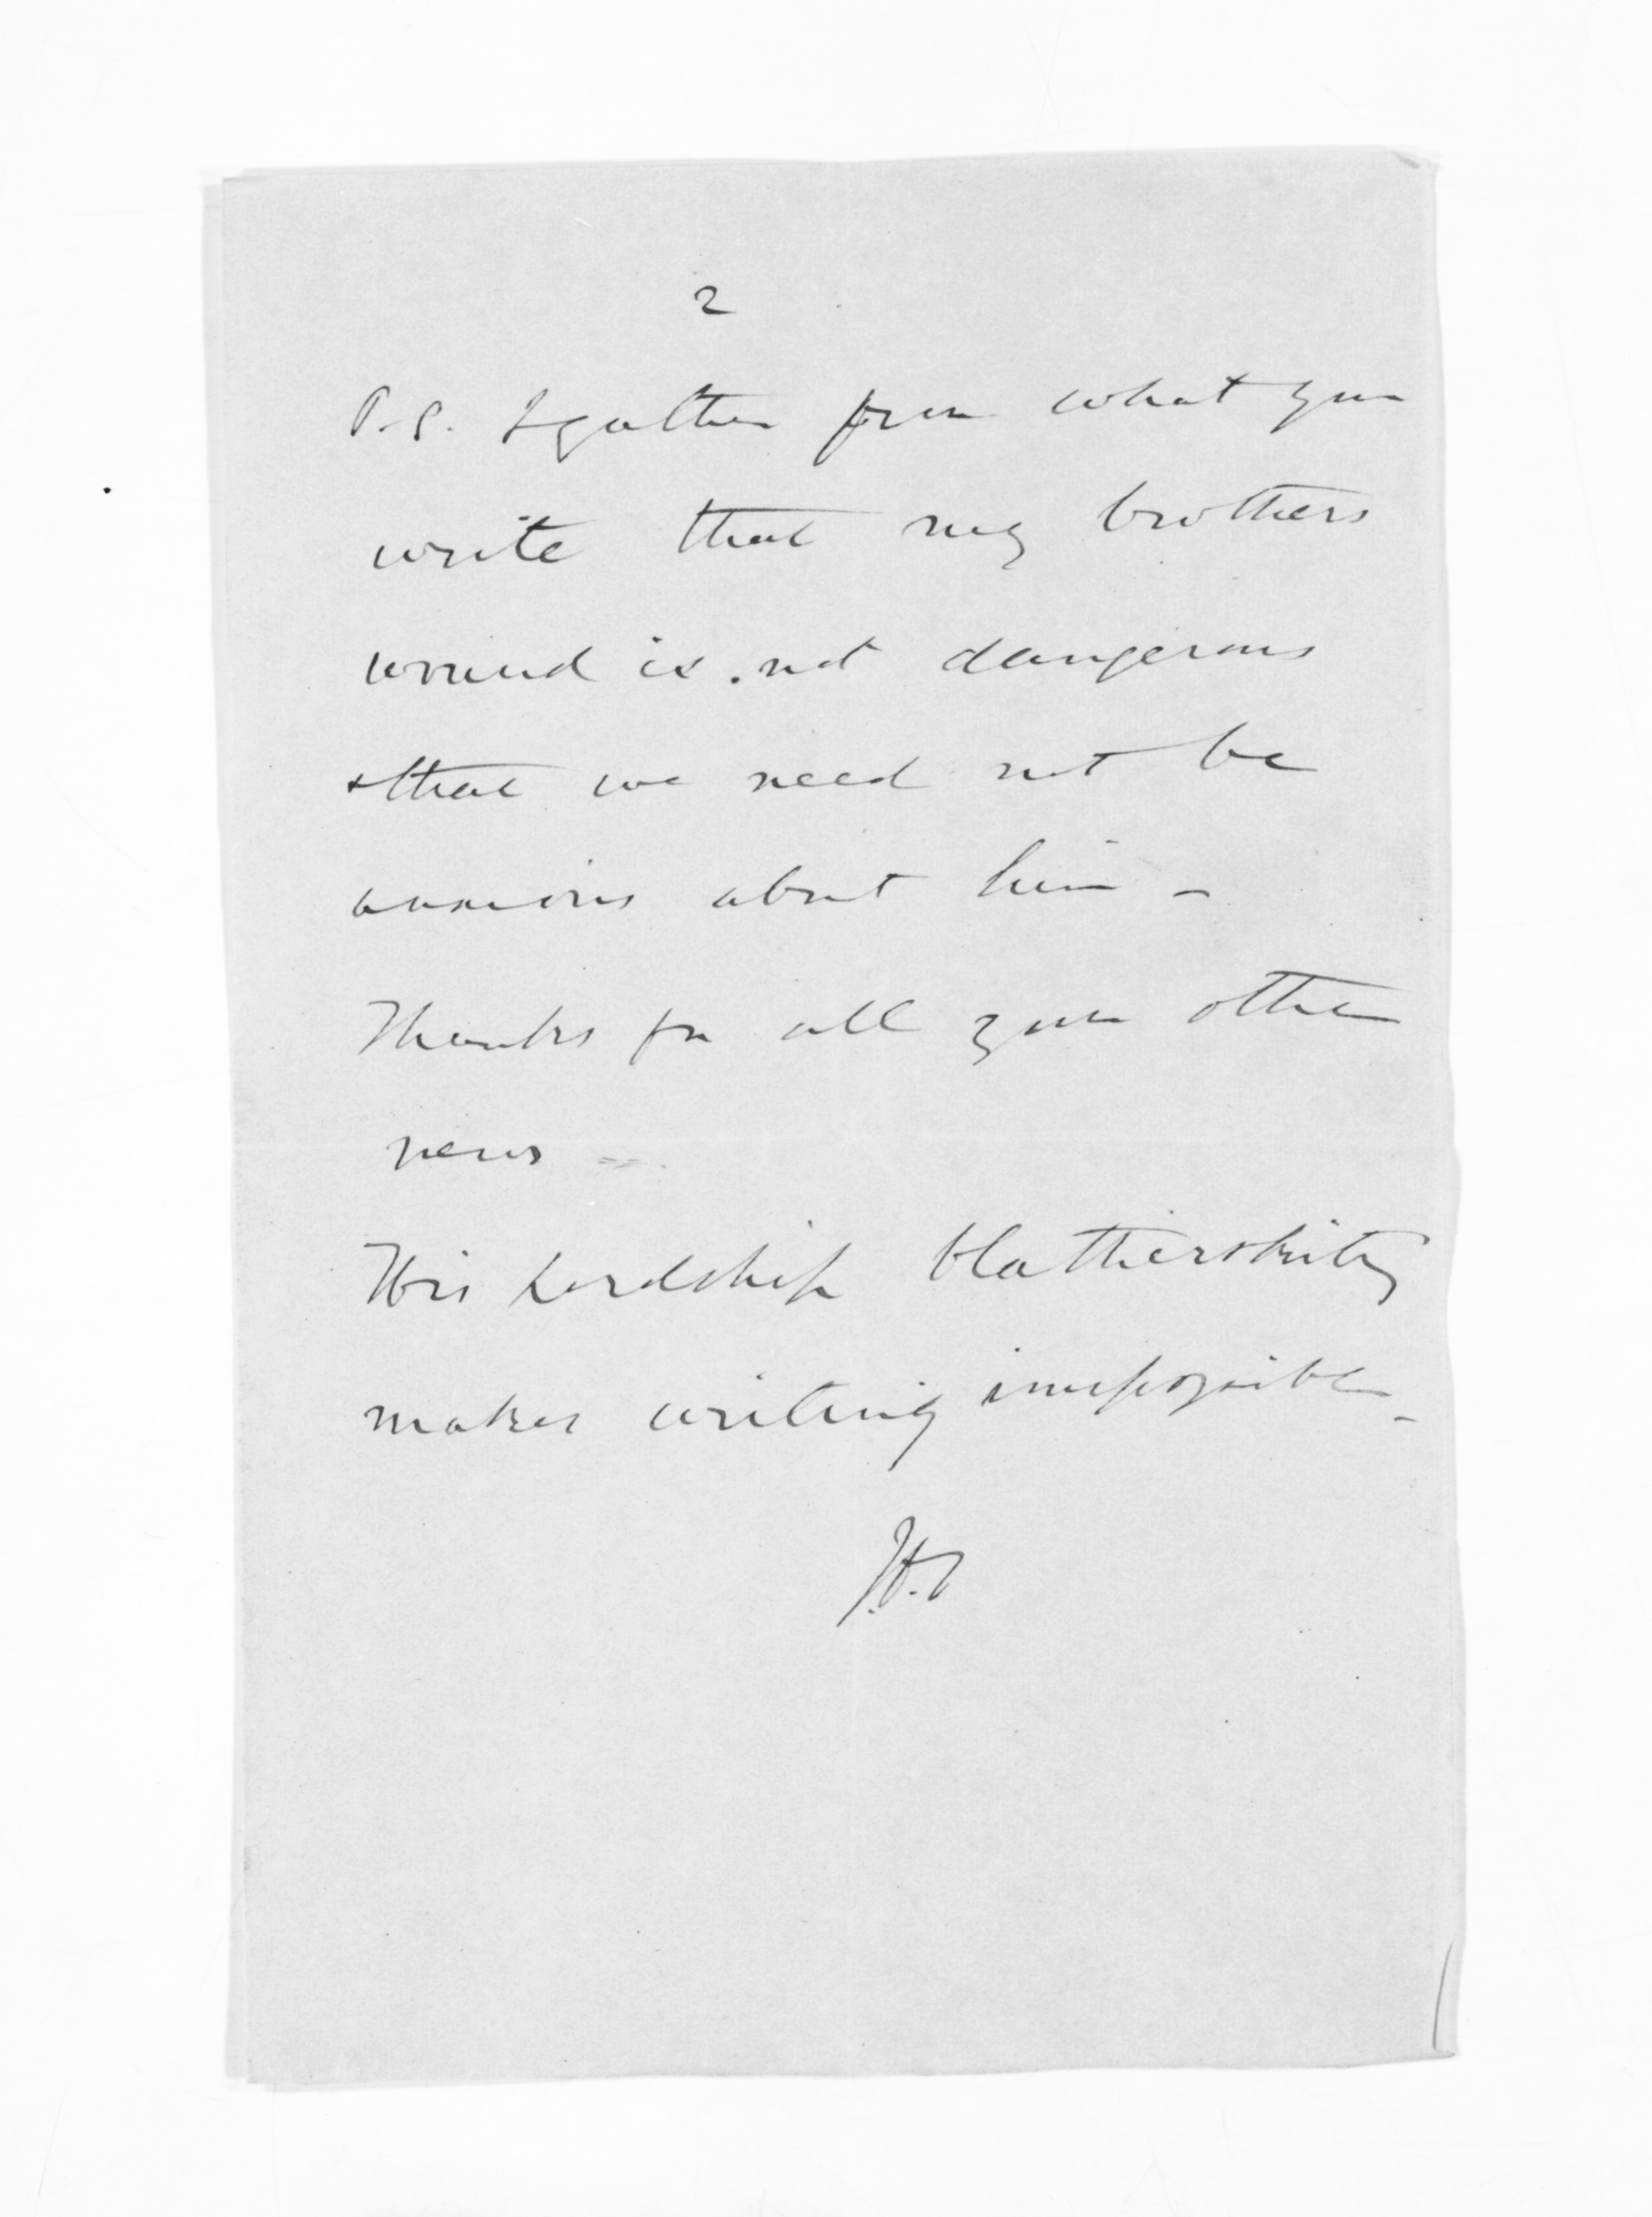 2
P.S. I gather from what you
write that my brothers
wound is not dangerous
& that we need not be
anxious about him -
Thanks for all your other
news -
His Lordship blatherskity
makes writing impossible -